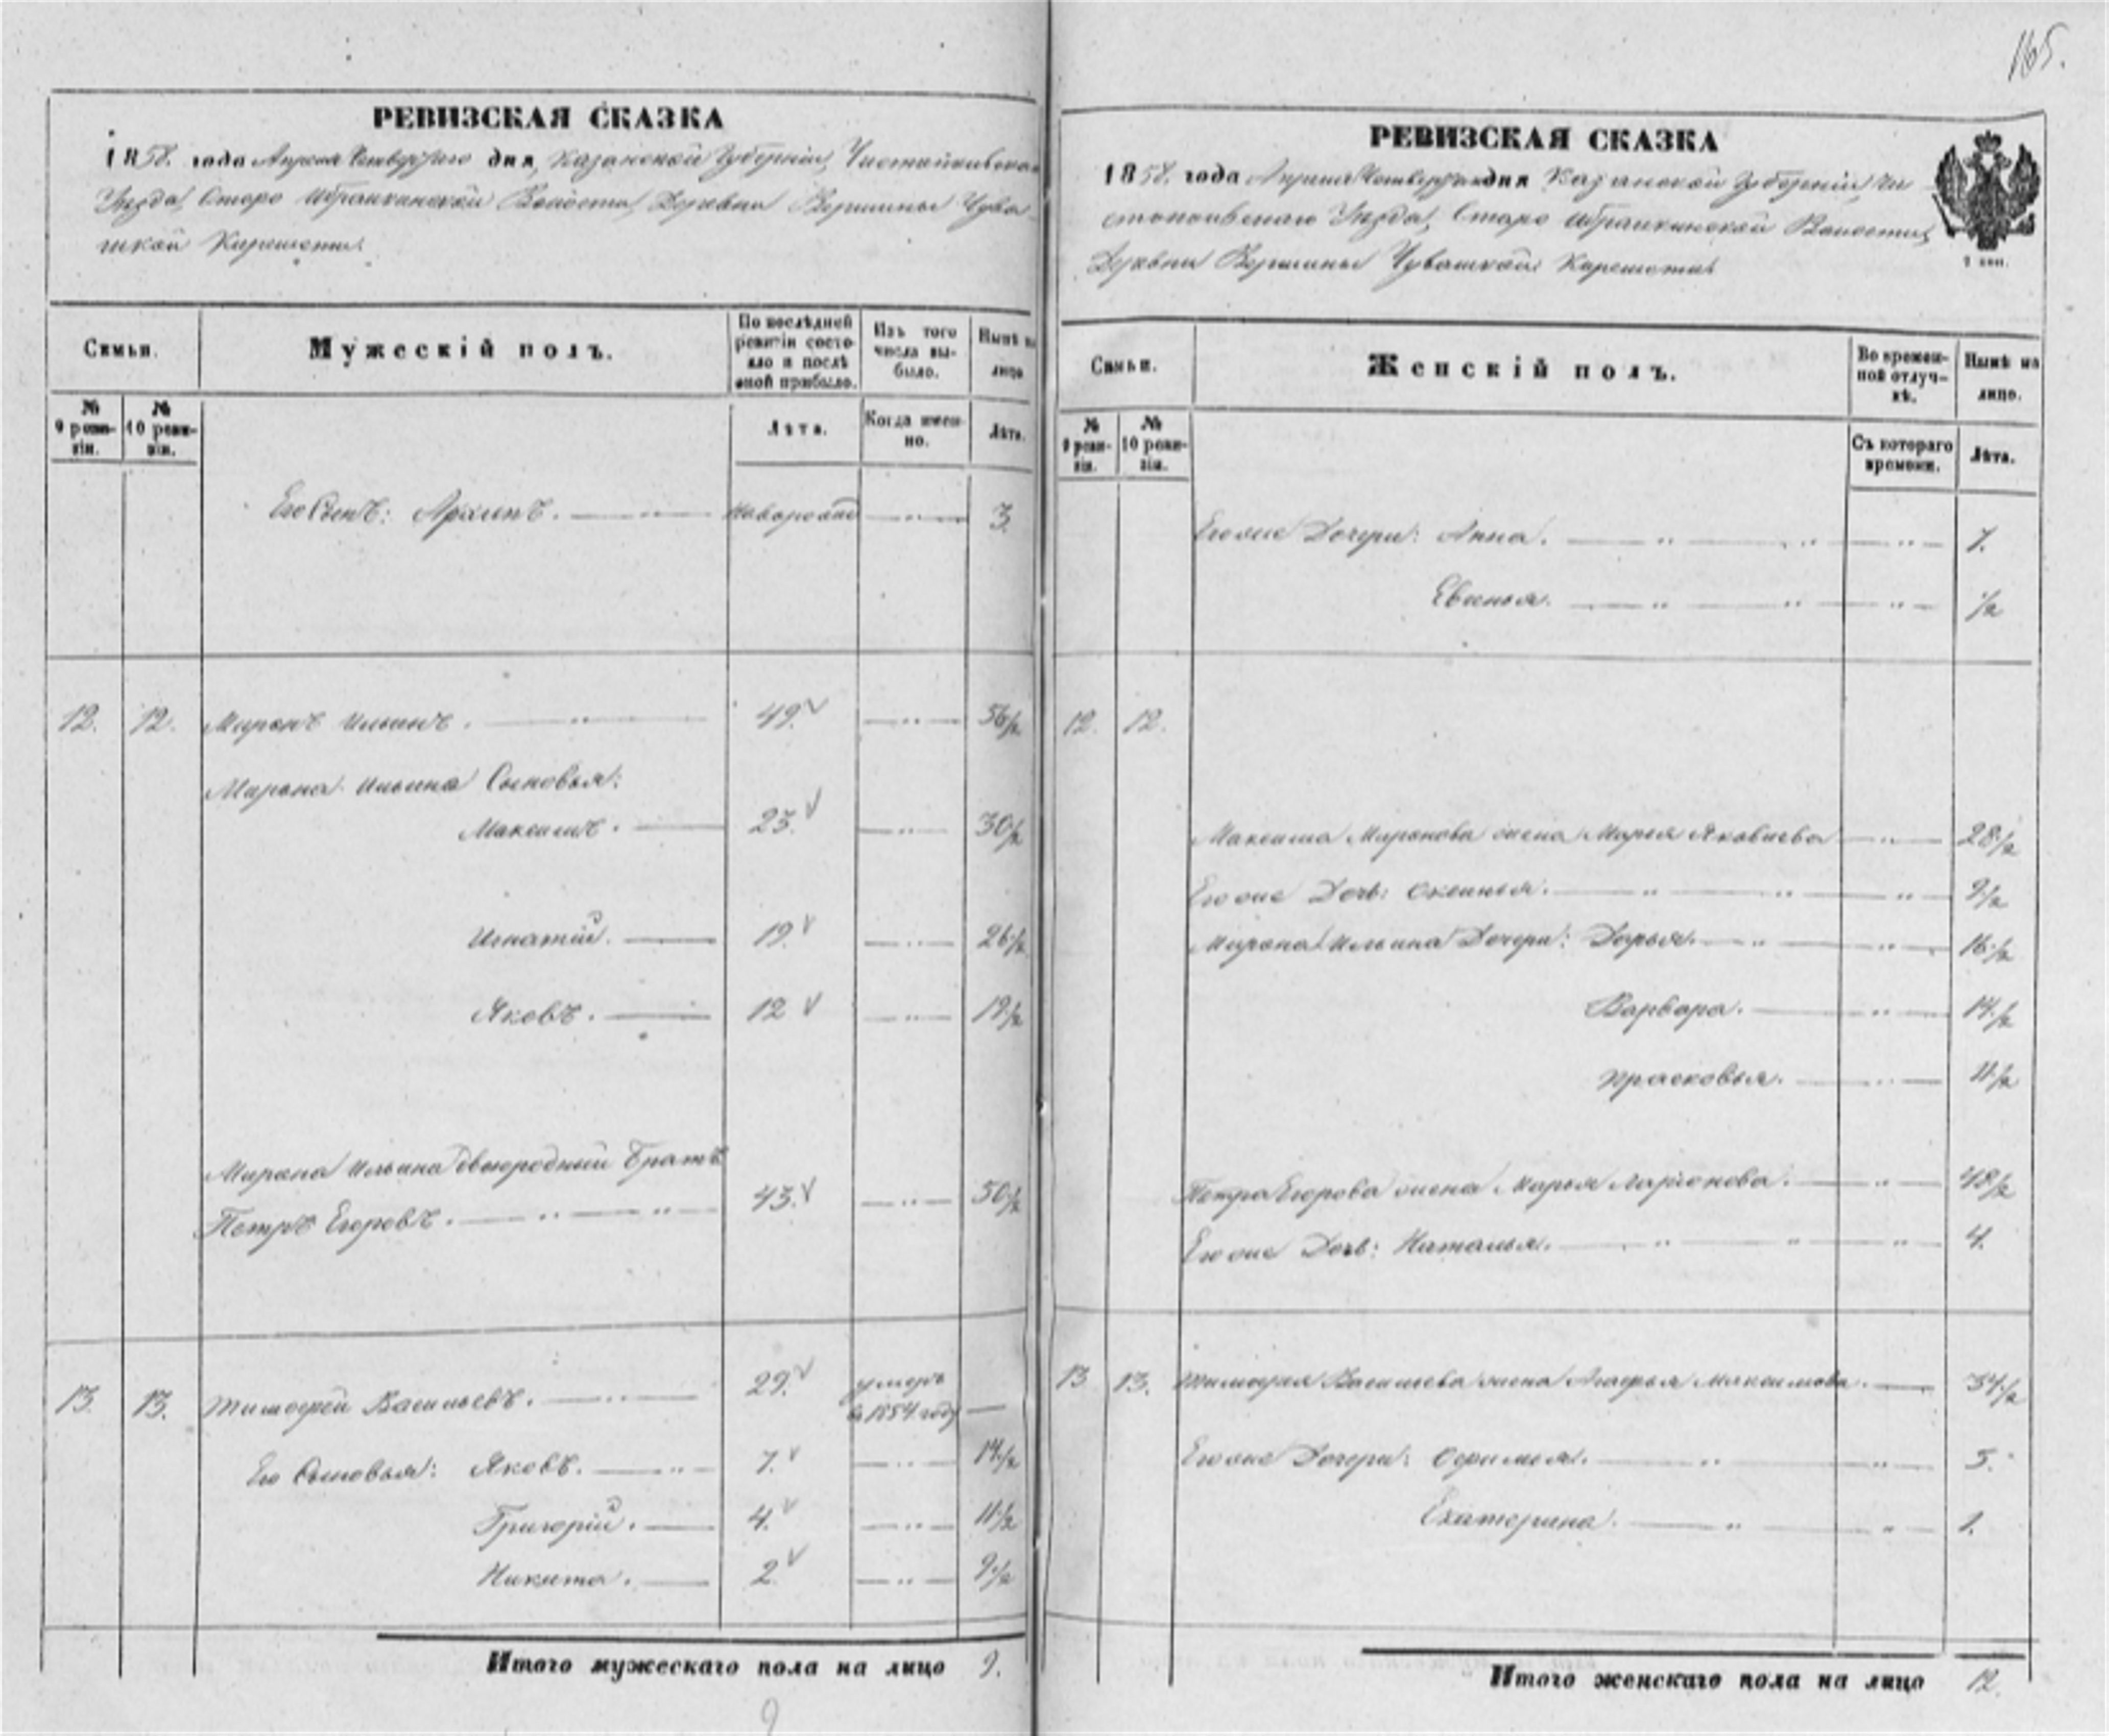 165.
РЕВИЗСКАЯ СКАЗКА
1858. года Апреля Четвертаго дня, Казанской Губерніи, Чистопольскаго
Уезда, Старо Ибрайкинской Волости, Деревни Вершины Чува-
шкой Киремети.
Семьи.
Мужескій полъ.
По послѣдней ревизіи состояло и послѣ оной прибыло.
Изъ того числа выбыло.
Нынѣ на лицо
№ 9 ревизіи.
№ 10 ревизіи.
Лѣта.
Когда именно.
Лѣта.
Его Сынъ: новорожд 3.
12. 12. Миронъ Ильинъ. 49. 56½
Мирона Ильина Сыновья:
Максимъ. 23. 30½
Игнатій. 19. 26½
Яковъ. 12 19½
Мирона Ильина двоюродный Братъ
Петръ Егоровъ. 43. 50½
13. 13. Тимофей Васильевъ. 29. умеръ в 1854 году
Его Сыновья: Яковъ. 7. 14½
Григорій. 4. 11½
Никита. 2 9½
Итого мужескаго пола на лицо 9.
9
РЕВИЗСКАЯ СКАЗКА
1858. года Апреля Четвертаго дня Казанской Губерніи, Чи
стопольскаго Уезда, Старо Ибрайкинской Волости,
Деревни Вершины Чувашкой Киремети.
Семьи.
Женскій полъ.
Во временной отлучкѣ.
Нынѣ на лицо.
№ 9 ревизіи.
№ 10 ревизіи.
Съ котораго времени.
Лѣта.
Его же Дочери: Анна. 7.
Евгенья. ½
12. 12.
Максима Миронова жена Марья Яковлева 28½
Его же Дочь: Оксинья. 9½
Мирона Ильина Дочери: Дарья. 16½
Варвара. 14½
Прасковья. 11½
Петра Егорова жена Марья Ларіонова. 48½
Его же Дочь: Наталья. 4.
13 13. Тимофея Васильева жена Агафья Максимова. 34½
Его же Дочери: Офимья. 5.
Екатерина. 1.
Итого женскаго пола на лицо 12.